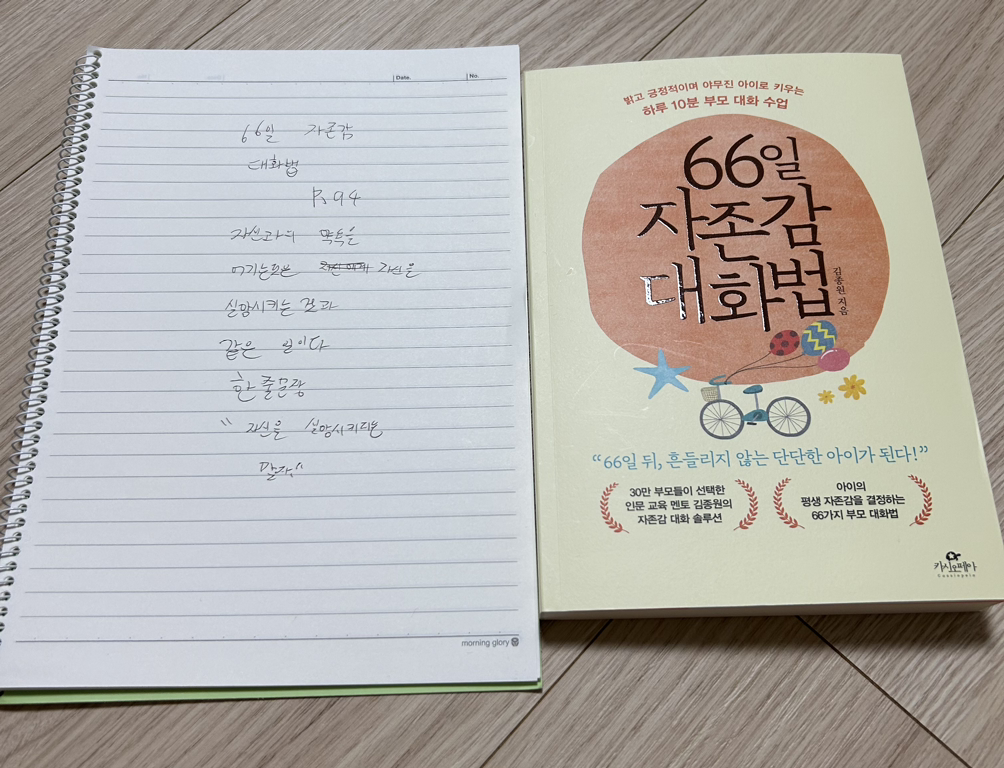 Date.
No.
66일 자존감
대화법
P. 94
자신과의 약속을
어기는 것은 자신을
실망시키는 것과
같은 일이다
한 줄 문장
" 자신을 실망시키지는
말자."
morning glory
밝고 긍정적이며 야무진 아이로 키우는
하루 10분 부모 대화 수업
66일
자존감
대화법
김종원 지음
“66일 뒤, 흔들리지 않는 단단한 아이가 된다!”
30만 부모들이 선택한
인문 교육 멘토 김종원의
자존감 대화 솔루션
아이의
평생 자존감을 결정하는
66가지 부모 대화법
카시오페아
Cassiopeia